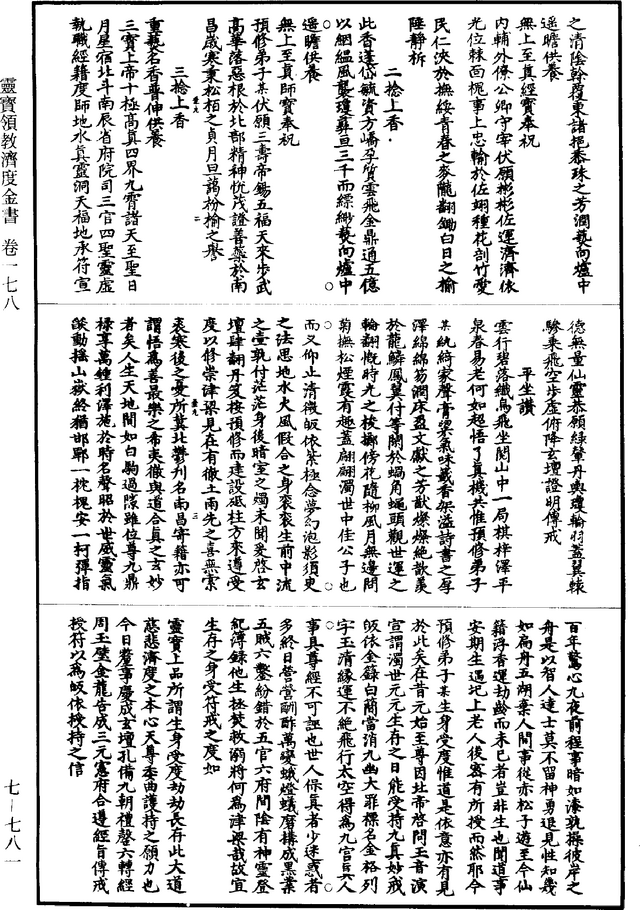 靈寶領教濟度金書 卷一七八
七—七八一
之清陰幹覆東諸挹黍珠之芳潤爇向爐中
遙瞻供養
無上至真經寶奉祝
內輔外僚公卿守宰伏願彬彬佐運濟濟依
光位棘面槐事上忠輸於佐翊種花剖竹愛
民仁浹於撫綏青春之麥隴翻鋤白日之榆
陸靜柝
二捻上香
此香蓬岱毓資方嶠孕質雲飛金鼎通五億
以絪縕風襲瓊彝亘三千而縹緲爇向爐中
遙瞻供養
無上至真師寶奉祝
預修弟子某伏願三壽帝錫五福天來步武
高華落惡根於北部精神悅茂證善藥於南
昌歲寒秉松栢之貞月旦藹枌榆之譽
三捻上香
重爇名香普伸供養
三寶上帝十極高真四界九霄諸天至聖日
月星宿北斗南辰省府院司三官四聖靈虛
執職經籍度師地水真靈洞天福地承符宣
德無量仙靈恭願綠輦丹輿瓊輪羽蓋翼轅
驂乘飛空步虛俯降玄壇證明傳戒
平坐讚
雲行碧落纖鳥飛坐閱山中一局棋梓澤平
泉春易老何如超悟了真機共惟預修弟子
某紈綺家聲膏粱氣味戴香架溢詩書之厚
澤綿綿笏潤床盈文獻之芳猷燦燦絕歆羨
於龍鱗鳳翼付等閑於蝸角蠅頭觀世運之
輪翻慨時光之梭擲傍花隨柳風月無邊問
菊撫松煙霞有趣蓋翩翩濁世中佳公子也
而又仰止清微皈依紫極念夢幻泡影須臾
之法思地水火風假合之身衮衮生前中流
之壺孰付茫茫身後暗室之燭未聞爰啓玄
壇肆翻丹笈按預修而建設砥柱方來遵受
度以修崇津梁見在有徹土雨先之喜無索
裘寒後之憂所冀北酆刋名南昌寄籍亦可
謂悟為善最樂之希夷徹與道合真之玄妙
者矣人生天地間如白駒過隙雖位尊九鼎
祿享萬鍾利澤施於時名聲昭於世威靈氣
燄動搖山嶽終猶邯鄲一枕槐安一柯彈指
百年驚心九夜前程事暗如漆孰操彼岸之
舟是以智人達士莫不留神勇退見性知幾
如扁舟五湖棄人間事從赤松子遊至今仙
籍浮香運劫齡而未已者豈非生也聞道事
安期生遇圯上老人後密有所授而然耶今
預修弟子某生身受度惟道是依意亦有見
於此矣在昔元始至尊因北帝啓問玉音演
宣謂濁世元元生存之日能受持九真妙戒
皈依金籙白簡當消九幽大罪標名金格列
字玉清緣運不絕飛行太空得為九宮真人
事具尊經不可誣也世人保真者少迷惑者
多終日營營酬酢萬變蛾燈蟻磨搆成黑業
五賊六鑿紛錯於五官六府間陰有神靈登
紀簿錄他生拯焚救溺將何為津梁哉故宜
生存之身受符戒之度如
靈寶上品所謂生身受度劫劫長存此大道
慈悲濟度之本心天尊委曲護持之願力也
今日釐事慶成玄壇孔備九朝禮罄六轉經
周玉璧金龍告成三元憲府合遵經旨傳戒
授符以為皈依授持之信